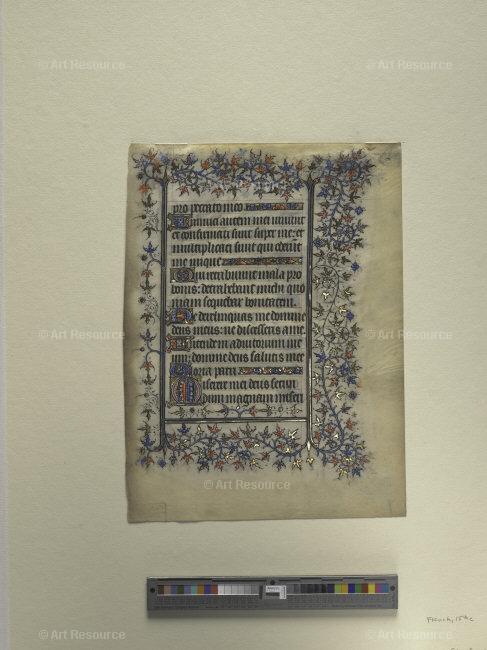 © Art Resource © Art Resource
pro peccato meo.
Inimici autem mei vivunt
et confirmati sunt super me: et
multiplicati sunt qui oderunt
me inique
Qui retribuunt mala pro
bonis: detrahebant michi quo
niam sequebar bonitatem.
Ne derelinquas me domine
deus meus: ne discesseris a me.
Intende in adiutorium me
um: domine deus salutis mee
Gloria patri
Miserere mei deus secun
dum magnam miseri
© Art Resource © Art Resource
© Art Resource
French, 15th c
© Art Resource © Art Resource